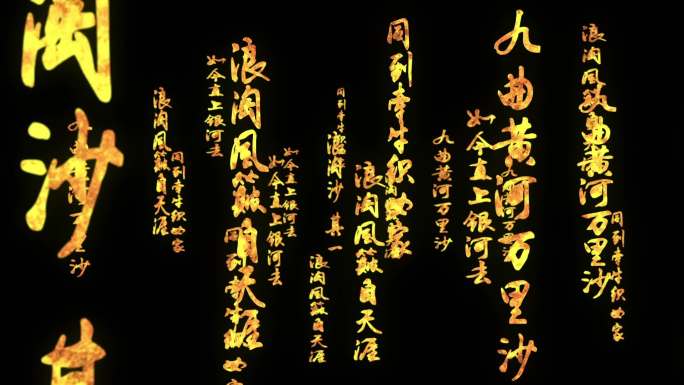 淘沙 其
九曲黄河万里沙
浪淘风簸自天涯
同到牵牛织女家
如今直上银河去
浪淘风簸自天涯
同到牵牛织女家
如今直上银河去
如今直上银河去
浪淘风簸自天涯
浪淘沙 其一
同到牵牛
浪淘风簸自天涯
同到牵牛织女家
九曲黄河万里沙
如今直上银河去
九曲黄河万里沙
九曲黄河万里沙
浪淘风簸
曲黄河万里沙
同到牵牛织女家